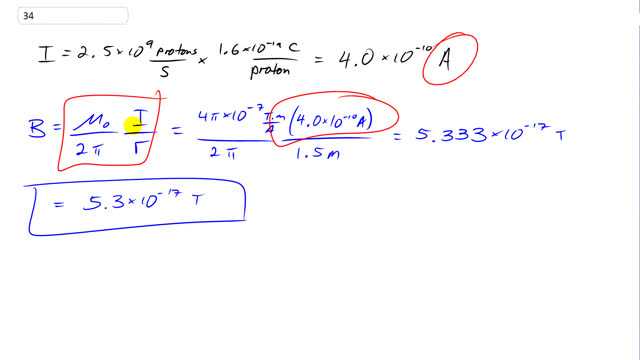 34
I = 2.5×10⁹ protons/s × 1.6×10⁻¹⁹ C/proton = 4.0×10⁻¹⁰ A
B = μ₀/2π I/r = 4π×10⁻⁷ T·m/A (4.0×10⁻¹⁰A) / 2π 1.5m = 5.333×10⁻¹⁷ T
= 5.3×10⁻¹⁷ T